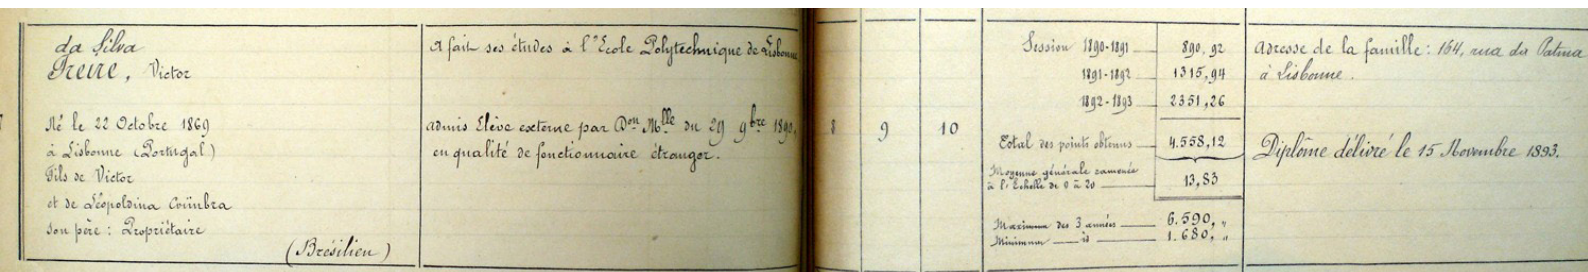 da Silva
Freire, Victor
Né le 22 Octobre 1869
à Lisbonne (Portugal)
Fils de Victor
et de Léopoldina Coïmbra
Son père : Propriétaire
(Brésilien)
A fait ses études à l'Ecole Polytechnique de Lisbonne
admis Elève externe par Don Mlle du 29 9bre 1890,
en qualité de fonctionnaire étranger.
8 9 10
Session 1890-1891 890,92
1891-1892 1315,94
1892-1893 2351,26
Total des points obtenus 4.558,12
Moyenne générale ramenée
à l'Echelle de 0 à 20 13,83
Maximum des 3 années 6.590, "
Minimum id 1.680, "
Adresse de la famille : 164, rua da
à Lisbonne.
Diplôme délivré le 15 Novembre 1893.